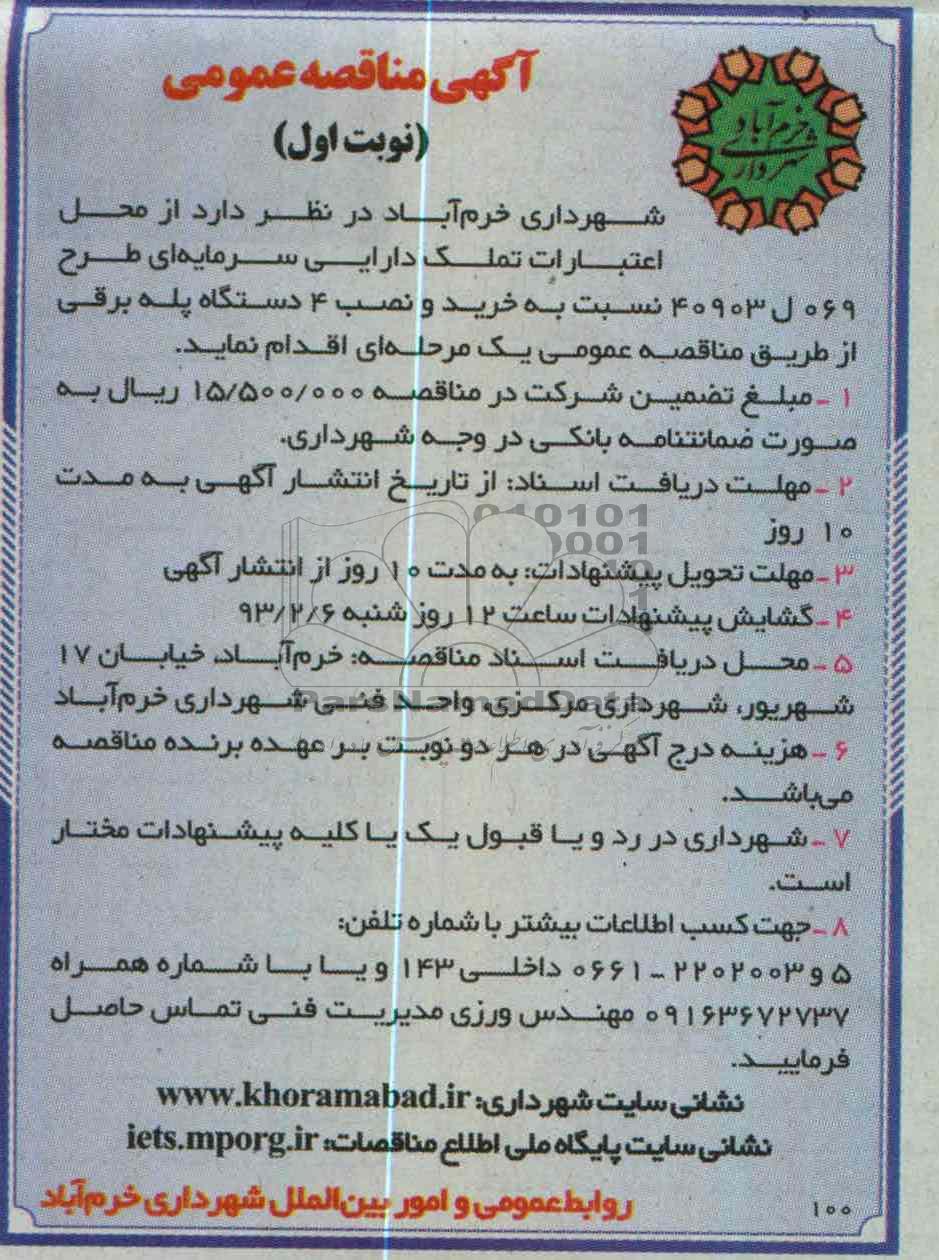 آگهی مناقصه عمومی
(نوبت اول)
خرم‌آباد
شهرداری
شهرداری خرم‌آباد در نظر دارد از محل
اعتبارات تملک دارایی سرمایه‌ای طرح
۰۶۹ ل ۴۰۹۰۳ نسبت به خرید و نصب ۴ دستگاه پله برقی
از طریق مناقصه عمومی یک مرحله‌ای اقدام نماید.
۱ - مبلغ تضمین شرکت در مناقصه ۱۵/۵۰۰/۰۰۰ ریال به
صورت ضمانتنامه بانکی در وجه شهرداری.
۲ - مهلت دریافت اسناد: از تاریخ انتشار آگهی به مدت
۱۰ روز
۳ - مهلت تحویل پیشنهادات: به مدت ۱۰ روز از انتشار آگهی
۴ - گشایش پیشنهادات ساعت ۱۲ روز شنبه ۹۳/۲/۶
۵ - محل دریافت اسناد مناقصه: خرم‌آباد، خیابان ۱۷
شهریور، شهرداری مرکزی، واحد فنی شهرداری خرم‌آباد
۶ - هزینه درج آگهی در هر دو نوبت بر عهده برنده مناقصه
می‌باشد.
۷ - شهرداری در رد و یا قبول یک یا کلیه پیشنهادات مختار
است.
۸ - جهت کسب اطلاعات بیشتر با شماره تلفن:
۵ و ۲۲۰۲۰۰۳ - ۰۶۶۱ داخلی ۱۴۳ و یا با شماره همراه
۰۹۱۶۳۶۷۲۷۳۷ مهندس ورزی مدیریت فنی تماس حاصل
فرمایید.
نشانی سایت شهرداری: www.khoramabad.ir
نشانی سایت پایگاه ملی اطلاع مناقصات: iets.mporg.ir
روابط عمومی و امور بین‌الملل شهرداری خرم‌آباد
۱۰۰
ParsNamadData